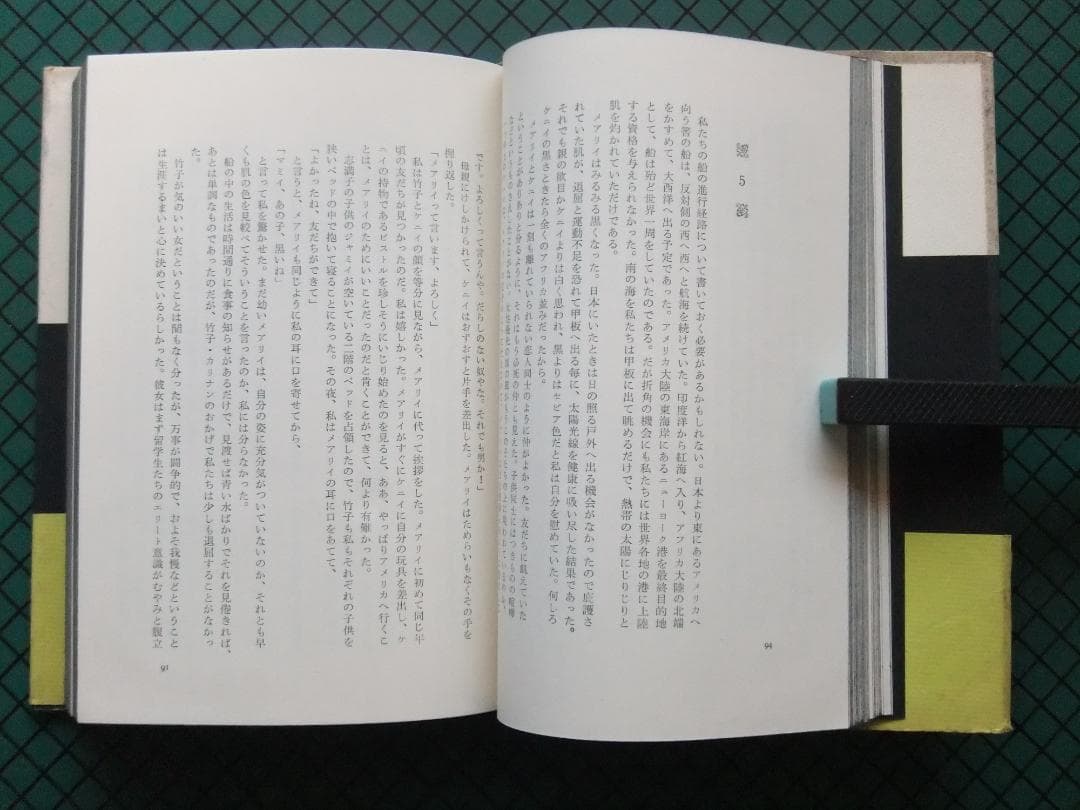 5
私たちの船の進行経路について書いておく必要があるかもしれない。日本より東にあるアメリカへ
向う筈の船は、反対側の西へ西へと航海を続けていた。印度洋から紅海へ入り、アフリカ大陸の北端
をかすめて、大西洋へ出る予定であった。アメリカ大陸の東海岸にあるニューヨーク港を最終目的地
として、船は殆ど世界一周をしていたのである。だが折角の機会にも私たちには世界各地の港に上陸
する資格を与えられなかった。南の海を私たちは甲板に出て眺めるだけで、熱帯の太陽にじりじりと
肌を灼かれていただけである。
メアリイはみるみる黒くなった。日本にいたときは日の照る戸外へ出る機会がなかったので庇護さ
れていた肌が、退屈と運動不足を恐れて甲板へ出る毎に、太陽光線を健康に吸い尽した結果であった。
それでも親の欲目かケニイよりは白く思われ、黒よりはセピア色だと私は自分を慰めていた。何しろ
ケニイの黒さときたら全くのアフリカ並みだったから。
メアリイとケニイは一刻も離れていられない恋人同士のように仲がよかった。友だちに飢えていた
ということがありありと分るように、それはもう必死の仲とも見えた。子供同士にはつきものの喧嘩
94
です。よろしくって言うんや。だらしのない奴やな。それでも男か！」
母親にけしかけられて、ケニイはおずおずと片手を差出した。メアリイはためらいもなくその手を
握り返した。
「メアリイって言います、よろしく」
私は竹子とケニイの顔を等分に見ながら、メアリイに代って挨拶をした。メアリイに初めて同じ年
頃の友だちが見つかったのだ。私は嬉しかった。メアリイがすぐにケニイに自分の玩具を差出し、ケ
ニイの持物であるピストルを珍しそうにいじり始めたのを見ると、ああ、やっぱりアメリカへ行くこ
とは、メアリイのためにいいことだったのだと肯くことができて、何より有難かった。
志満子の子供のジャミイが空いている二階のベッドを占領したので、竹子も私もそれぞれの子供を
狭いベッドの中で抱いて寝ることになった。その夜、私はメアリイの耳に口をあてて、
「よかったね、友だちができて」
と言うと、メアリイも同じように私の耳に口を寄せてから、
「マミイ、あの子、黒いね」
と言って私を驚かせた。まだ幼いメアリイは、自分の姿に充分気がついていないのか、それとも早
くも肌の色を見較べてそういうことを言ったのか、私には分らなかった。
船の中の生活は時間通りに食事の知らせがあるだけで、見渡せば青い水ばかりでそれを見倦きれば、
あとは単調なものであったのだが、竹子・カリナンのおかげで私たちは少しも退屈することがなかっ
た。
竹子が気のいい女だということは間もなく分ったが、万事が闘争的で、およそ我慢などということ
は生涯するまいと心に決めているらしかった。彼女はまず留学生たちのエリート意識がむやみと腹立
91